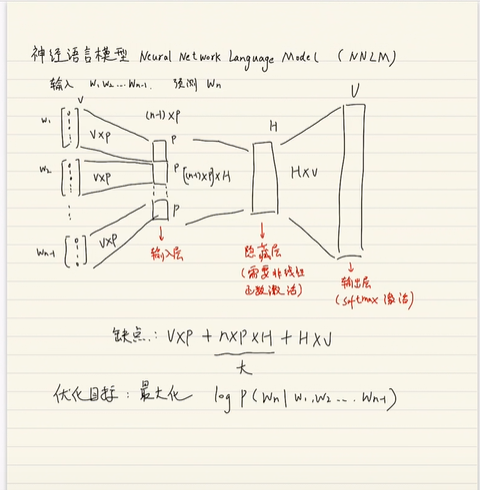 神经语言模型 Neural Network Language Model (NNLM)
输入 W₁ W₂ ... Wn-1. 预测 Wn
V
V
(n-1)×P
H
W₁
V×P
P
W₂
V×P
P
[(n-1)×P]×H
H×V
P
Wn-1
V×P
输入层
隐藏层
(需要非线性
函数激活)
输出层
(softmax 激活)
缺点: V×P + n×P×H + H×V
大
优化目标: 最大化 log P(Wn | W₁, W₂ ... Wn-1)